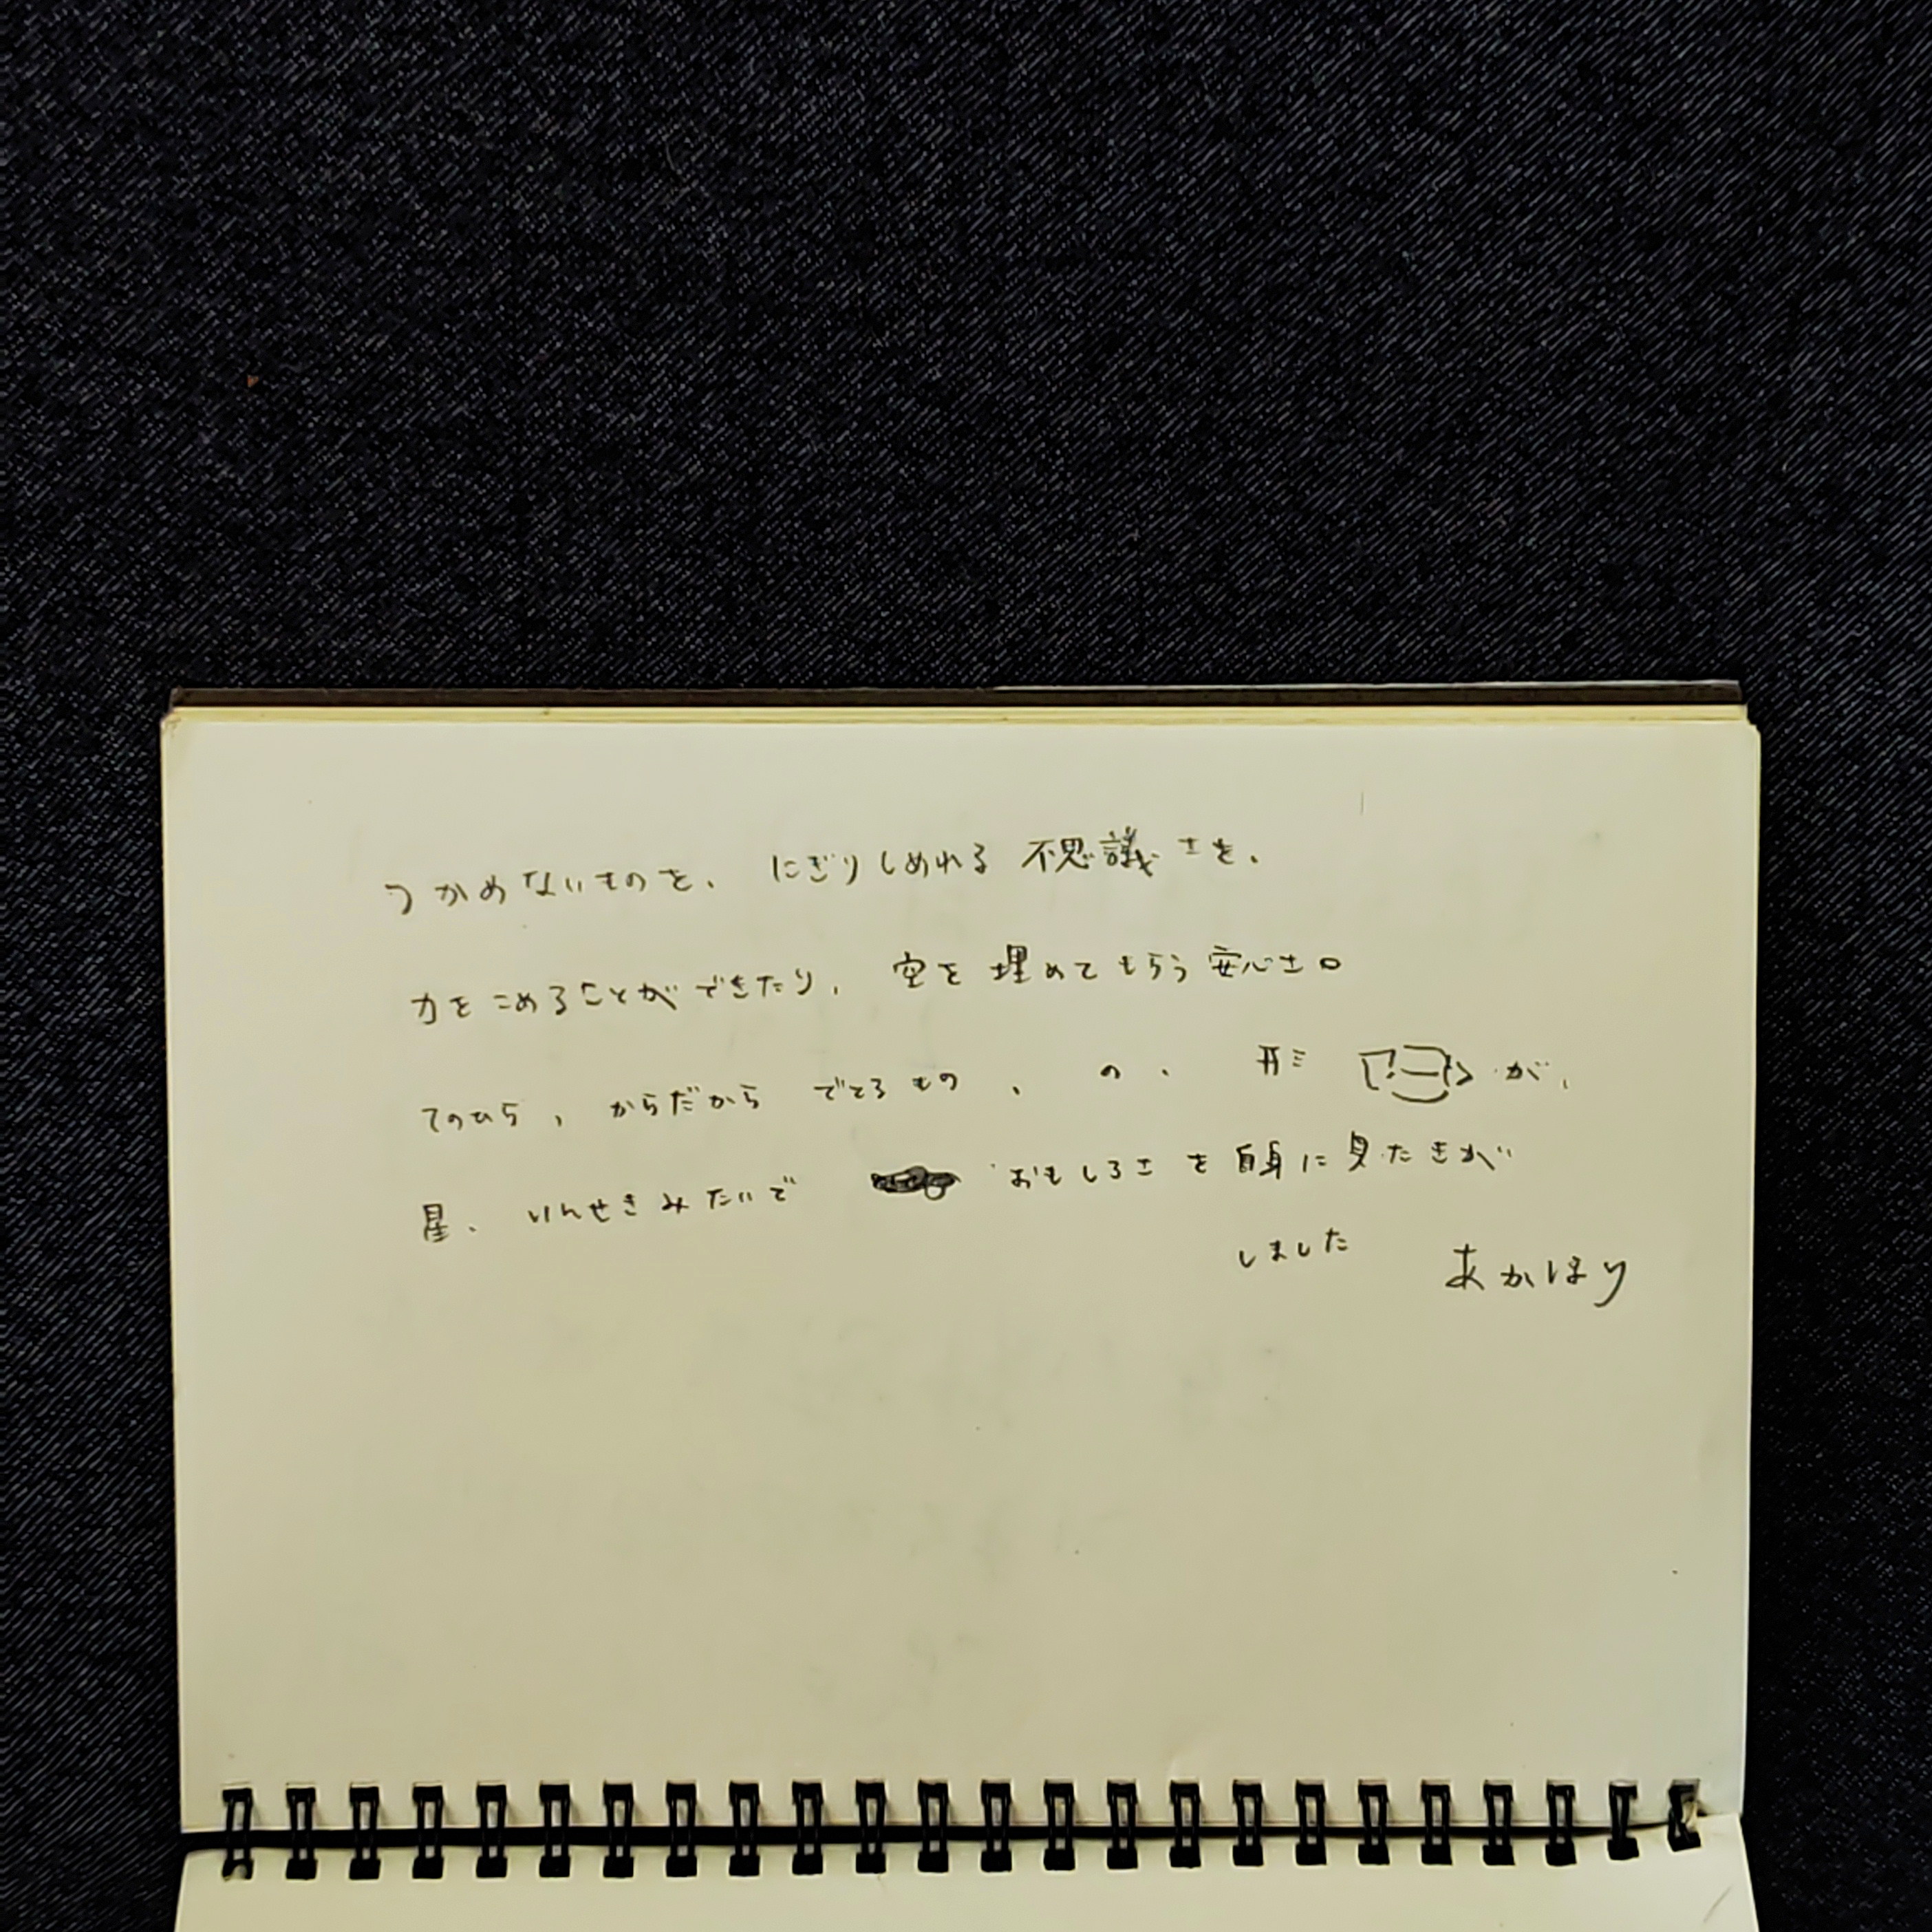 つかめないものを、にぎりしめれる不思議さを、
力をこめることができたり、空を埋めてもらう安心さ。
てのひら、からだから でてるもの、の、形 が、
星、いんせきみたいで おもしろさを自身に見たきが
しました あかほり